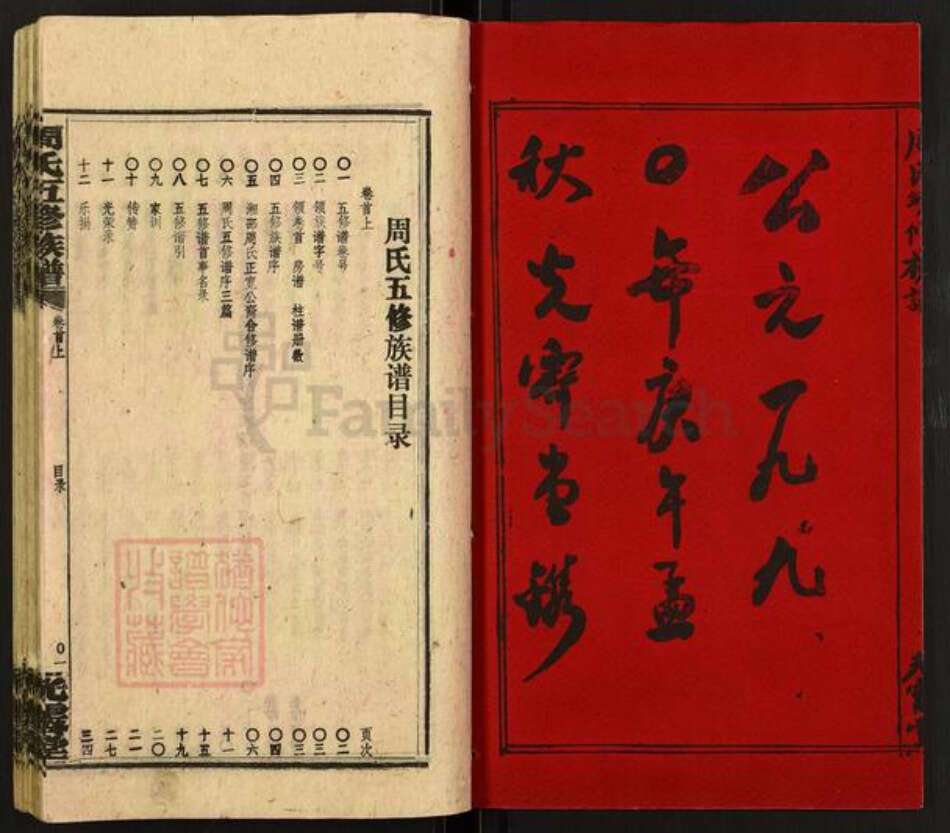 公元一九九
〇年庚午孟
秋光霁堂镌
周氏五修族谱目录
卷首上 页次
〇一 五修谱卷号 〇二
〇二 领族谱字号 〇三
〇三 领卷首 房谱 柱谱册数 〇三
〇四 五修族谱序 〇四
〇五 湘鄂周氏正宽公裔合修谱序 〇六
〇六 周氏五修谱序三篇 十一
〇七 五修谱首事名录 十五
〇八 五修谱引 十九
〇九 家训 二〇
〇十 传赞 二一
十一 光荣录 二七
十二 乐捐 三四
周氏五修族谱 卷首上 目录 〇一 光霁堂
FamilySearch